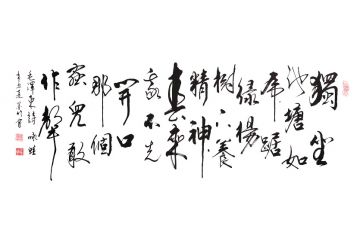 獨坐
池塘如
虎踞
绿楊
樹下養
精神
春來
我不先
開口
那個
蟲兒敢
作聲
毛澤東詩咏蛙